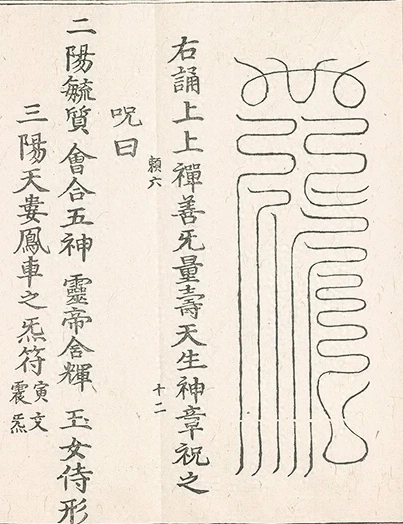 右誦上上禪善旡量壽天生神章祝之
賴六
十二
呪曰
二陽毓質 會合五神 靈帝含輝 玉女侍形
三陽天婁鳳車之炁符 寅文
震炁